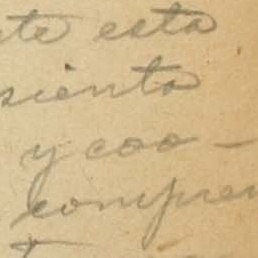 te esta
siento
y coo-
compren